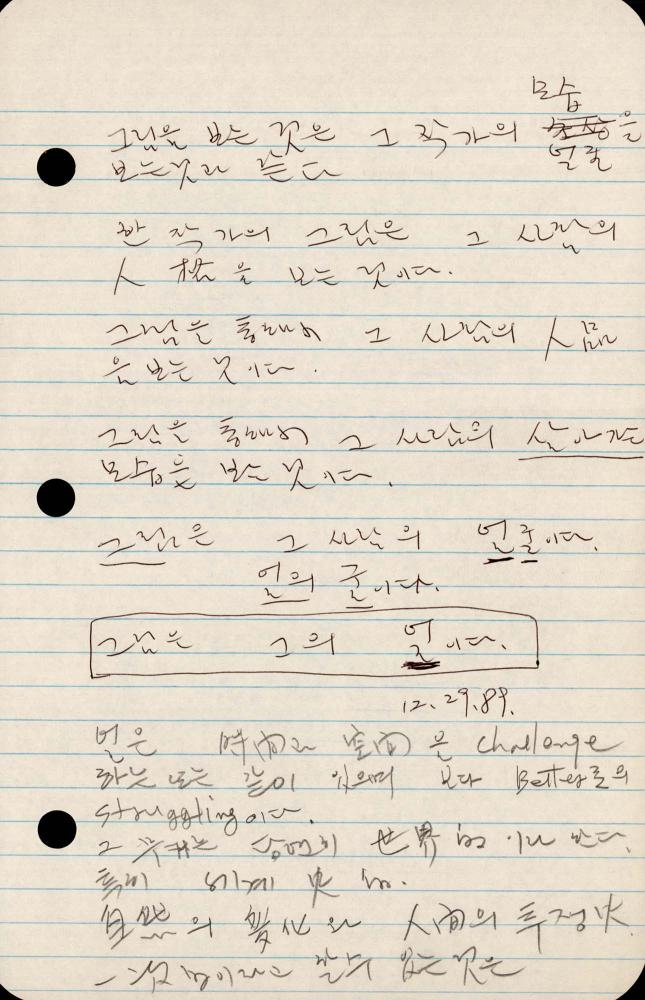 모습
그림을 보는 것은 그 작가의 을
보는것과 같다 얼굴
한 작가의 그림은 그 사람의
人格을 보는 것이다.
그림을 통해서 그 사람의 人品
을 보는 것이다.
그림을 통해서 그 사람의 살아가는
모습을 보는 것이다.
그림은 그 사람의 얼굴이다.
얼의 굴이다.
그림은 그의 얼이다.
12.29.89.
얼은 時間과 空間을 challenge
하는 있으며 보다 Better로의
struggling이다.
그 당연히 世界的 이다.
특히 세계 史 的.
自然의 變化와 人間의 투쟁史.